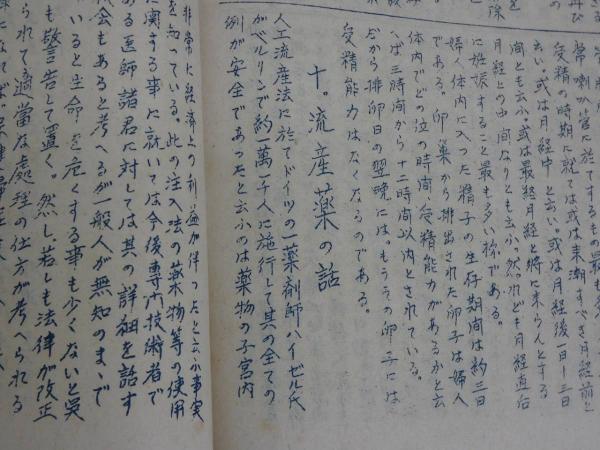 常喇叭管に於てするもの最も多
受精の時期に就ては或は来潮すべき月経前と
云い、或は月経中と云い。或は月経後一日ー三日
間とも云ふ。或は最終月経と将に来らんとする
月経との中間なりとも云ふ。然れども月経直后
に妊娠すること最も多い様である。
婦人体内に入った精子の生存期間は約三日
である。卵巣から排出された卵子は婦人
体内でどの位の時間、受精能力があるかと云
へば三時間から十二時間以内とされている。
だから排卵日の翌晩には。もうその卵子には
受精能力はなくなるのである。
十。流産薬の話
人工流産法に於てドイツの一薬剤師ハイゼル氏
がベルリンで約一萬一千人に施行して其の全ての
例が安全であったと云ふのは薬物の子宮内
非常に経済上の利益が伴ったと云ふ事実
を知っている。此の注入法の薬物等の使用
に関する事に就いては今後専門技術者で
ある医師諸君に対しては其の詳細を話す
機会もあると考へるが一般人が無知のまゝで
いると生命を危くする事も少くないと異
も警告して置く。然し若しも法律が改正
られて適当な処理の仕方が考へられる